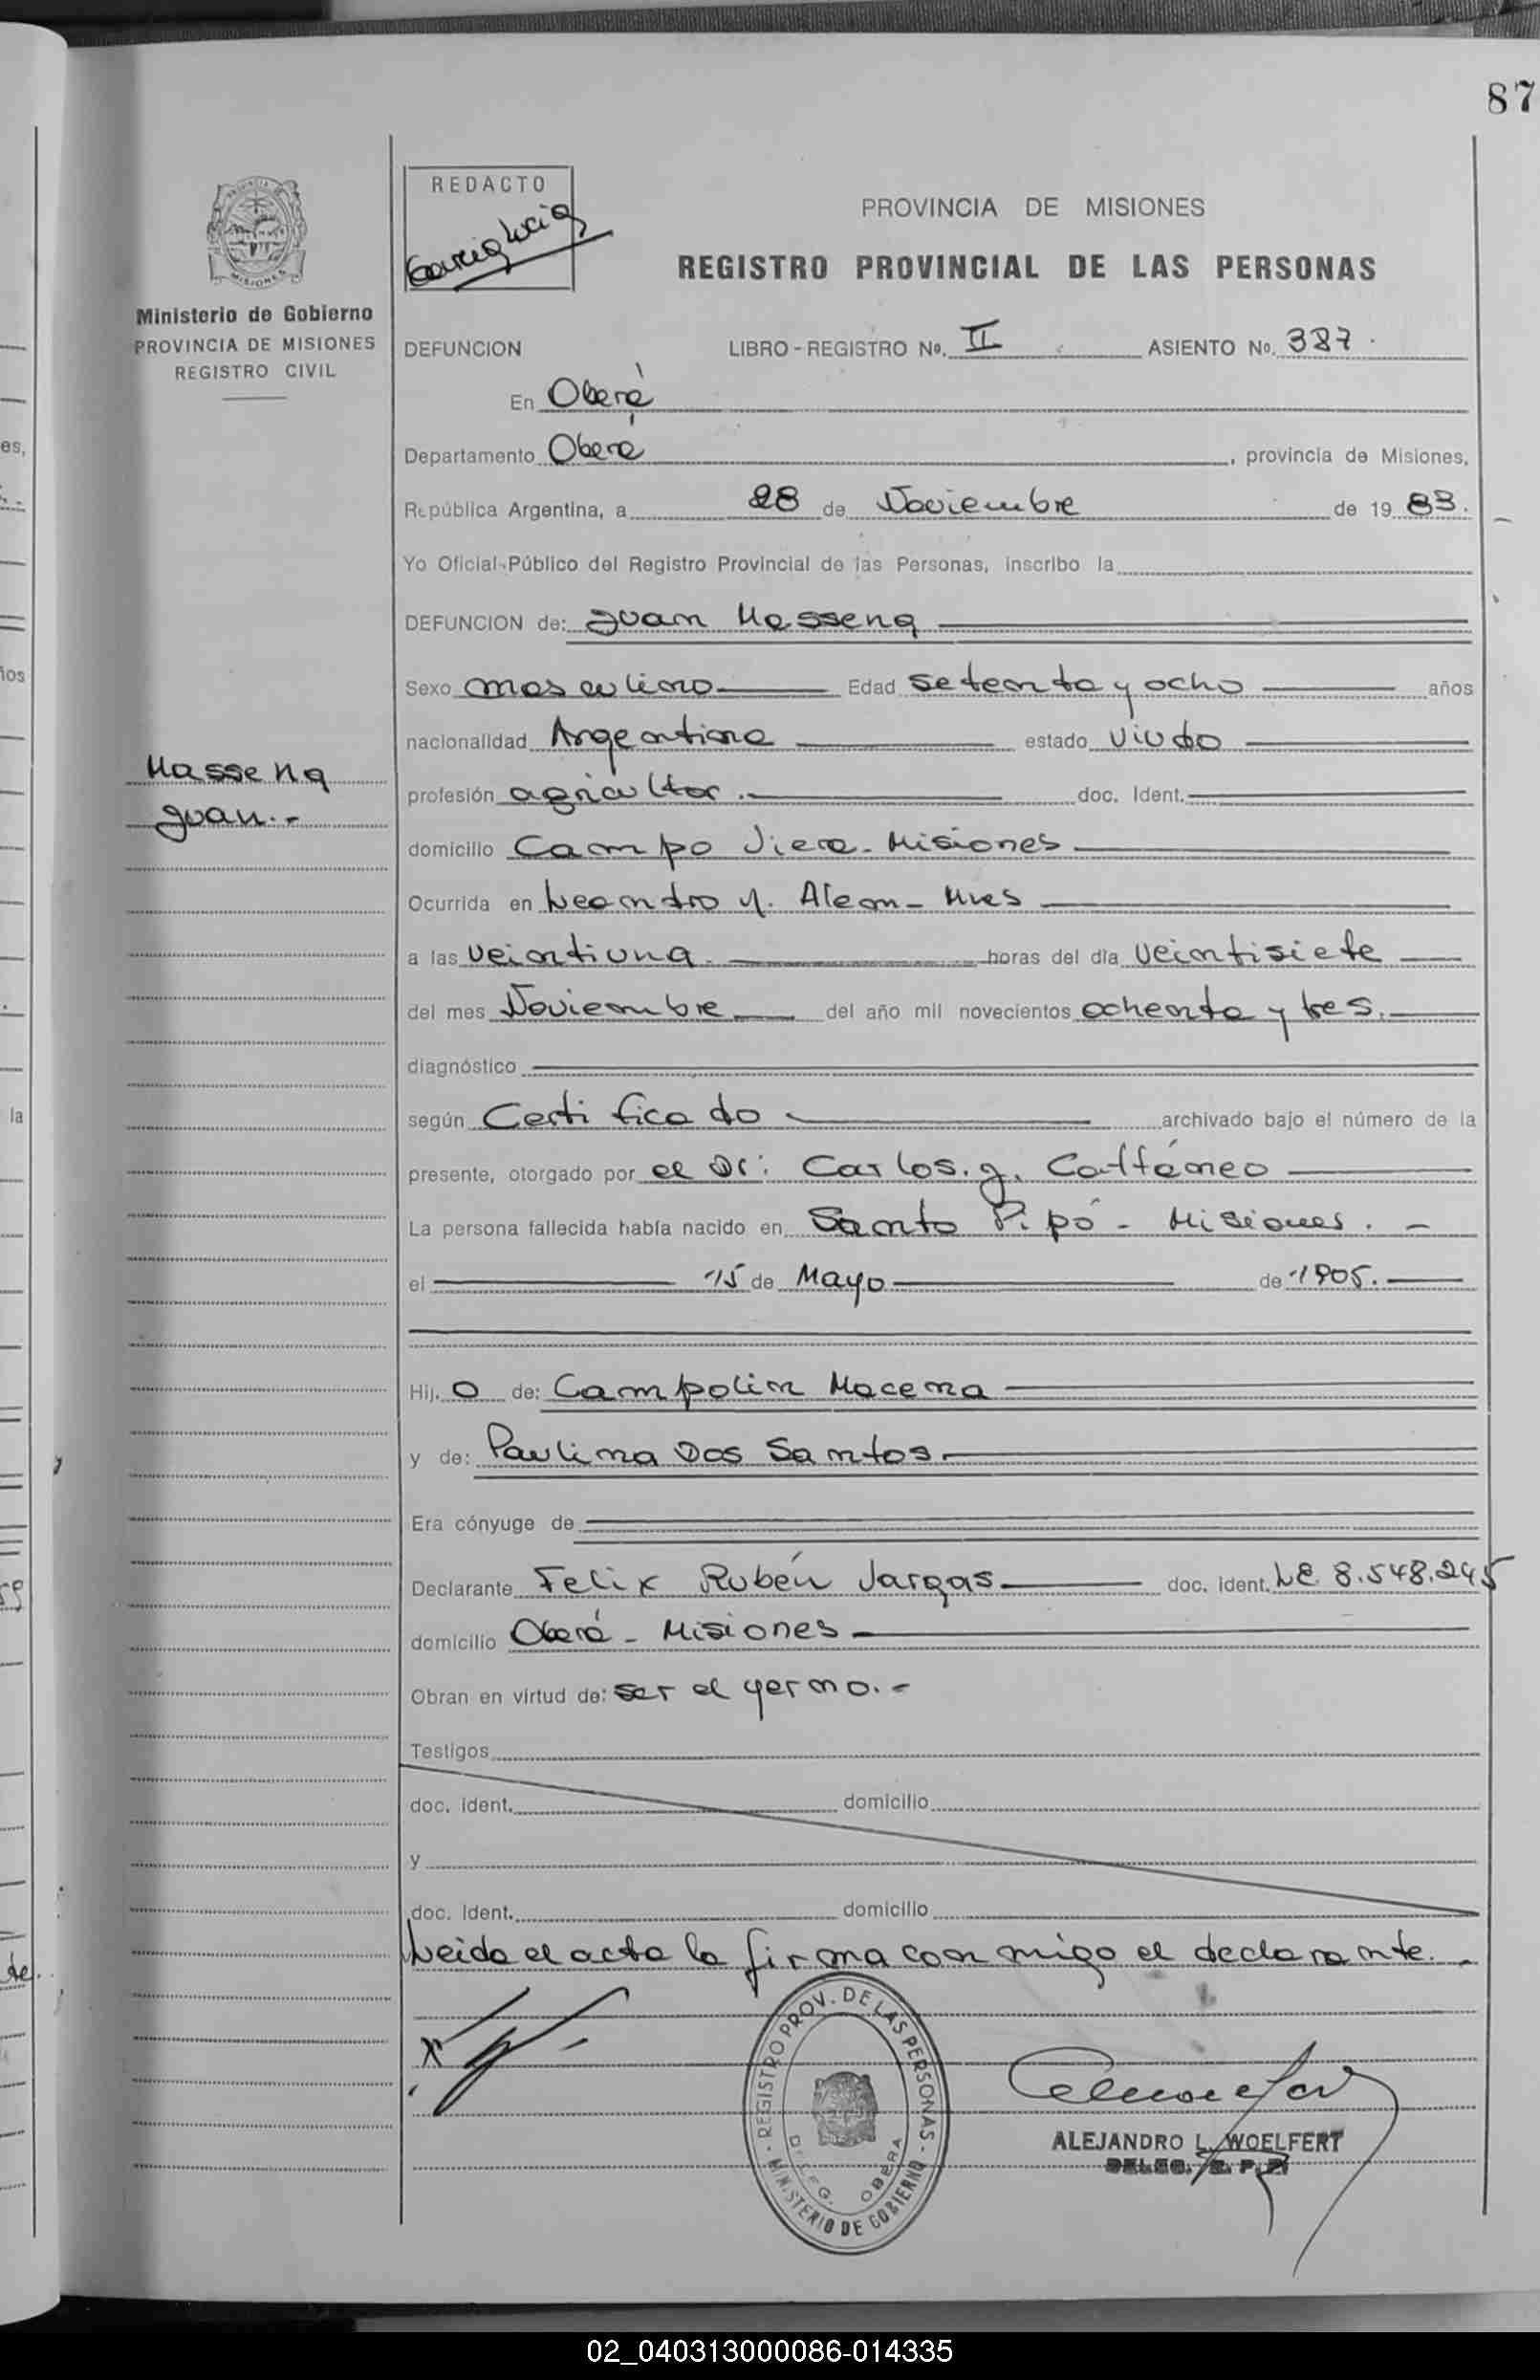 87
REDACTO
PROVINCIA DE MISIONES
REGISTRO PROVINCIAL DE LAS PERSONAS
MISIONES
Ministerio de Gobierno
PROVINCIA DE MISIONES
REGISTRO CIVIL
DEFUNCION LIBRO - REGISTRO No. II ASIENTO No. 387.
En Oberá
Departamento Oberá, provincia de Misiones,
República Argentina, a 28 de Noviembre de 19 83.
Yo Oficial Público del Registro Provincial de las Personas, inscribo la
DEFUNCION de: Juan Massena
Sexo masculino Edad setenta y ocho años
nacionalidad Argentina estado viudo
Massena
Juan.-
profesión agricultor. doc. Ident.
domicilio Campo Viera - Misiones
Ocurrida en Leandro N. Alem - Mnes
a las veintiuna. horas del día veintisiete
del mes Noviembre del año mil novecientos ochenta y tres.
diagnóstico
según Certificado archivado bajo el número de la
presente, otorgado por el Dr: Carlos. J. Cattáneo
La persona fallecida había nacido en Santo Pipó - Misiones. -
el 15 de Mayo de 1905.
Hij. o de: Campolin Macena
y de: Paulina Dos Santos.
Era cónyuge de
Declarante Felix Rubén Vargas doc. ident. LE 8.548.245
domicilio Oberá - Misiones
Obran en virtud de: ser el yerno.-
Testigos
doc. ident. domicilio
y
doc. Ident. domicilio
Leida el acta la firma conmigo el declarante. -
REGISTRO PROV. DE LAS PERSONAS - MINISTERIO DE GOBIERNO -
DELEG. OBERA
ALEJANDRO L. WOELFERT
DELEG. R. P. P.
es,
ños
la
te.
02_040313000086-014335